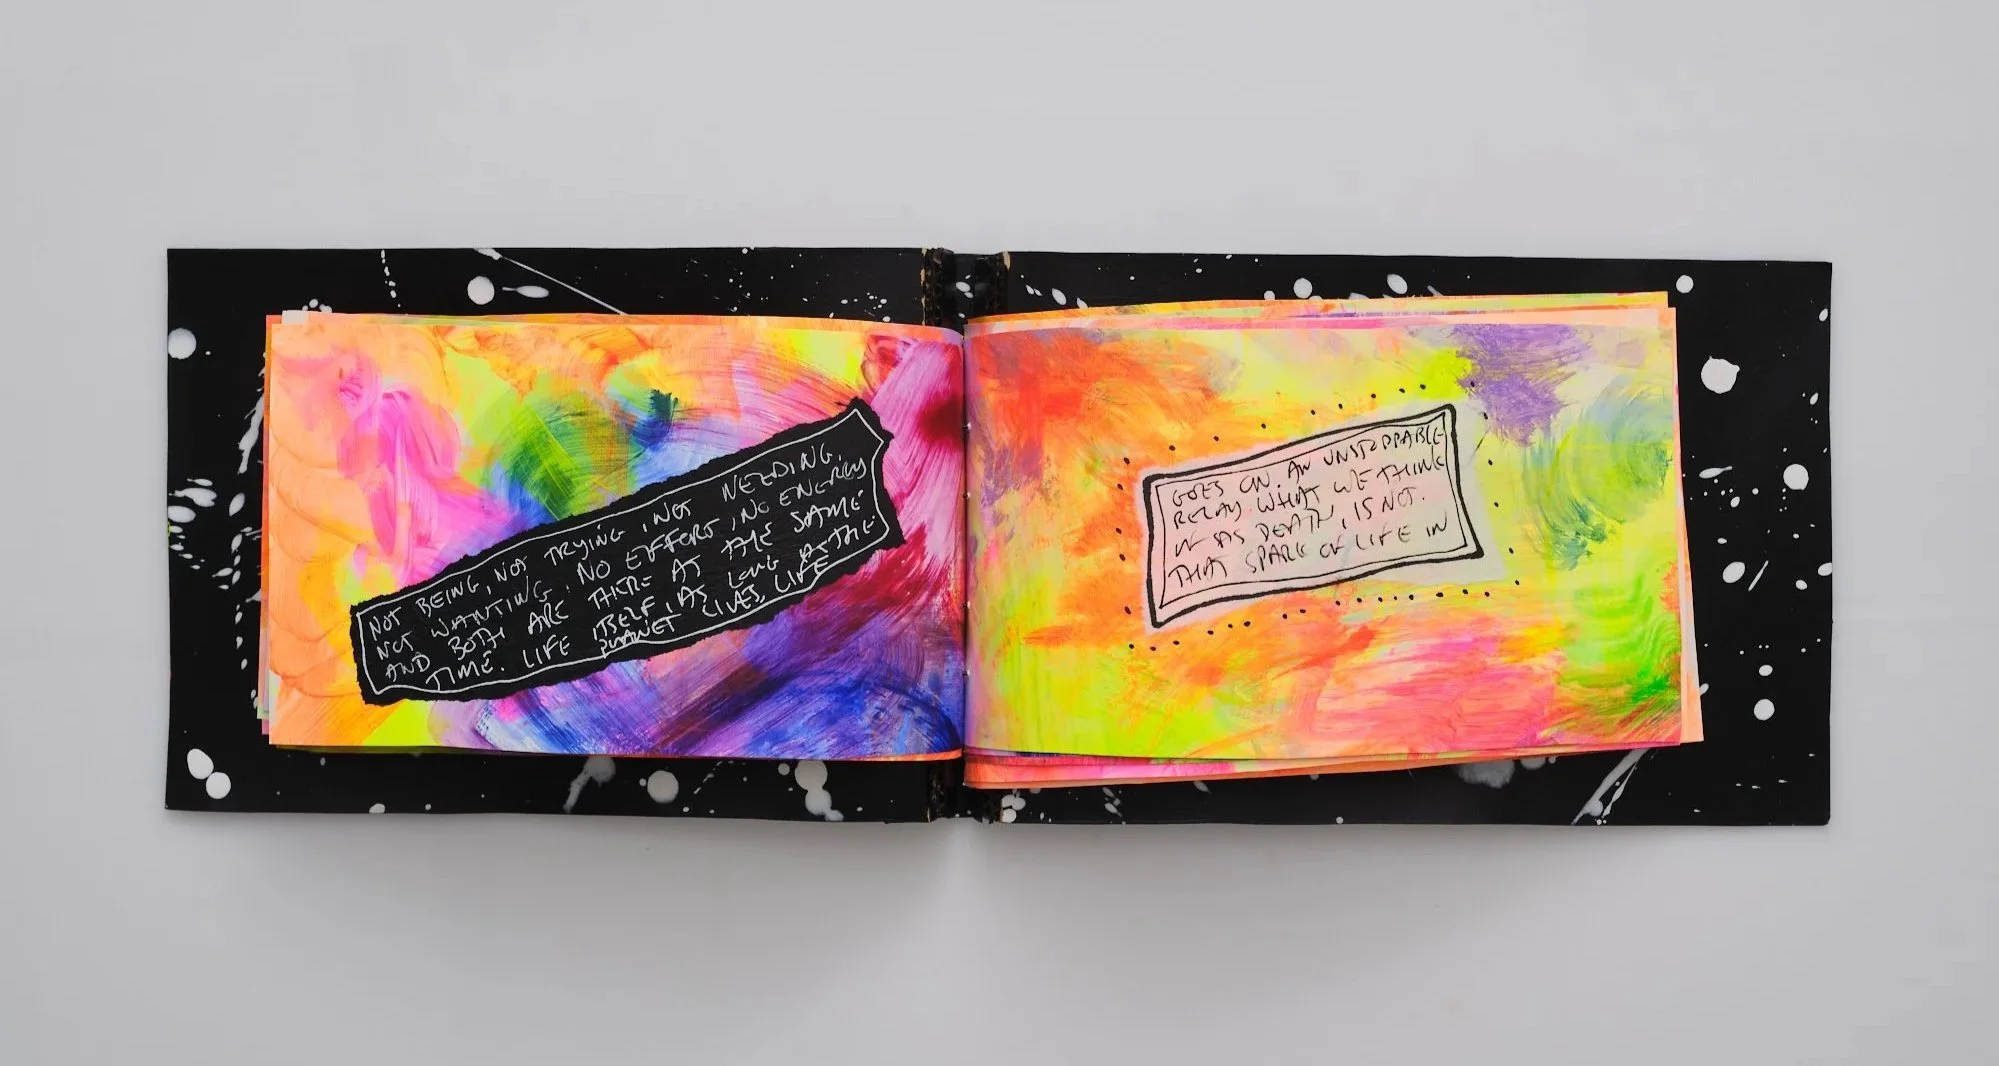 NOT BEING, NOT TRYING, NOT NEEDING,
NOT WANTING. NO EFFORT, NO ENERGY
AND BOTH ARE THERE AT THE SAME
TIME. LIFE ITSELF, AS LONG AS THE
PLANET LIVES, LIFE
GOES ON. AN UNSTOPPABLE
RELAY. WHAT WE THINK
OF AS DEATH, IS NOT.
THAT SPARK OF LIFE IN